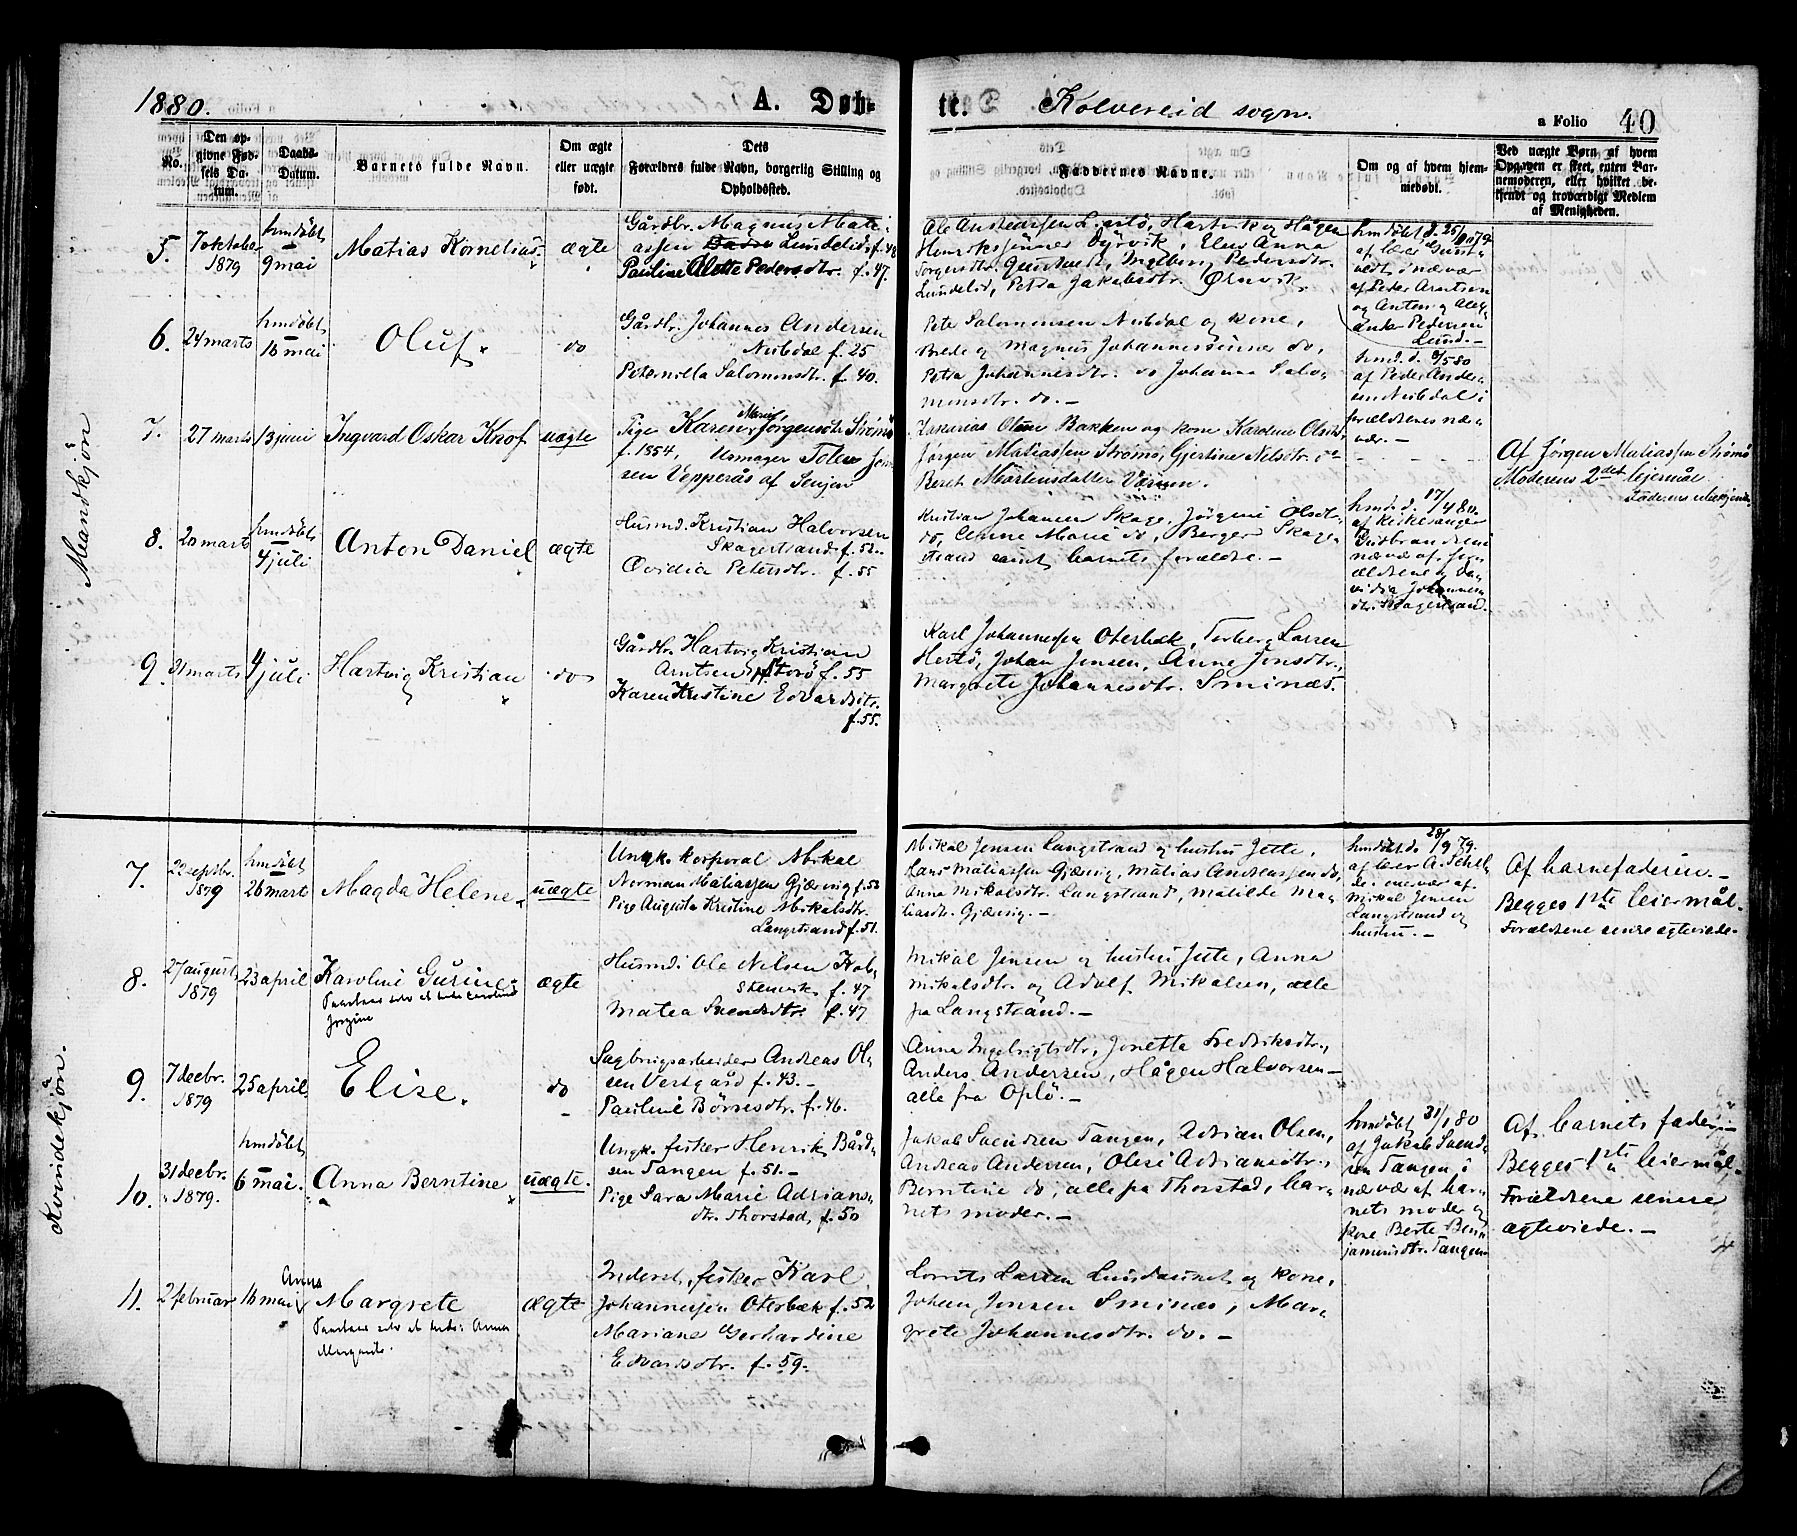 1880.
A. Døb-
te.
Kolvereid sogn.
a Folio
40
No.
Den op-
givne Fød-
sels Da-
tum.
Daabs-
Datum.
Barnets fulde Navn.
Om ægte
eller uægte
født.
Dets
Forældres fulde Navn, borgerlig Stilling og
Opholdssted.
Faddernes Navne.
Om og af hvem hjem-
medøbt.
Ved uægte Børn, af hvem
Opgaven er skeet, enten Bar-
nemoderen, eller hvilket be-
kjendt og troværdigt Medlem
af Menigheden.
Mandkjön
5.
7 oktober
1879
hmdöbt
9 mai
Matias Kornelius
ægte
Gårdbr. Magnus Mati-
assen Lundelid f. 48
Pauline Alette Pedersdtr. f. 47.
Ole Hartvik og Hågen
Dyrvik, Elen Anna
Ingeborg Pedersdtr.
Lundelid, Petra Jakobsdtr. Ørnvik.
hmdöbt d. 25/10 79
af lærer
i nævær
af Peder Arntsen
og Anton og
Pedersen
Lund. –
6.
24 marts
hmdöbt
16 mai
Oluf.
do
Gårdbr. Johannes Andersen
Nubdal f. 25
Peternilla Salomonsdtr. f. 40.
Salomonsen Nubdal og kone,
Brede og Magnus Johannessönner do,
Petra Johannesdtr. do Johanna Salo-
monsdtr. do. –
hmd. d. 8/5 80
af Peder Ander-
sen Nubdal i
forældrenes næ-
vær. –
7.
27 marts
13 juni
Ingvard Oskar Knof
uægte
Pige Karen Marie Jörgensdtr. Strömö
f. 1854, Usmager Tolev Jen-
sen Vepperås af Senjen
Zakarias Olsen Bakken og kone Karoline Olsdtr.
Jörgen Matiassen Strömö, Gjertine Nilsdtr. do
Beret MartinsdatterVærum.
Af Jörgen Matiassen Strömö
Moderens 2det leiermål
8.
20 marts
hmdöbt
4 juli
Anton Daniel
ægte
Husmd. Kristian Halvorsen
Skagestrand f. 52
Ovidia Petersdtr. f. 55
Kristian Johansen Skage, Jörgine Olsdtr.
do, Anne Marie do, Berger Skage-
strand samt barnets forældre. –
hmd. d. 17/4 80.
af kirkesanger
Gudbrandsen i
nævær af for-
ældrene og O-
vidia Johannes-
dtr. Skagestrand.
9.
31 marts
4 juli
Hartvig Kristian
do
Gårdbr. Hartvig Kristian
Arntsen N. Storö f. 55
Karen Kristine Edvardsdtr.
f. 55.
Karl Johannessen Oterbæk, Torberg Larsen
Hestö, Johan Jensen, Anne Jonsdtr.,
Margrete Johannesdtr. Sminæs.
Kvindekjön.
7.
22 septbr.
1879
hmdöbt
26 marts
Magda Helene
uægte
Ungk. korporal Mikal
Norman Matiassen Gjærvig f. 52
Pige Augusta Kristine Mikalsdtr.
Langstrand f. 51.
Mikal Jensen Langstrand og hustru Jette,
Hans Matiassen Gjærvig, Matias Andreassen do,
Anna Mikalsdtr. Langstrand, Matilde Ma-
tiasdtr. Gjærvig. –
hmdöbt d. 28/9 79.
af lærer A.
i nævær af
Mikal Jensen
Langstrand og
hustru. –
Af barnefaderen. –
Begges 1ste leiermål.
Forældrene senere ægteviede.
8.
27 august
1879
23 april
Karoline Gurine
ægte
Husmd. Ole Nilsen Kol-
stenvik f. 47
Matea Svendsdtr. f. 47
Mikal Jensen og hustru Jette, Anna
Mikalsdtr. og Adolf Mikalsen, alle
på Langstrand. –
9.
7 decbr.
1879
25 april
Elise.
do
Sagbrugsarbeider Andreas Ol-
sen Vestgård f. 43. –
Pauline Börresdtr. f. 46.
Anna Ingebrigtsdtr., Jonetta Fredriksdtr.,
Anders Andersen, Hågen Halvorsen –
alle fra Oplö. –
10.
31 decbr.
1879.
hmdöbt
6 mai.
Anna Berntine
uægte.
Ungk. fisker Henrik Bård-
sen Tangen f. 51. –
Pige Sara Marie Adrians-
dtr. Thorstad, f. 50
Jakob Svendsen Tangen, Adrian Olsen,
Andreas Andersen, Olise Adriansdtr.,
Berntine do, alle på Thorstad, bar-
nets moder. –
hmdöbt 31/1 80
af Jakob Svend-
sen Tangen, i
nævær af bar-
nets moder og
kone Berte Ben-
jaminsdtr. Tangen
Af barnets fader. –
Begges 1ste leiermål,
Forældrene senere
ægteviede. –
11.
2 februar
16 mai
Anna
Margrete
Anna
ægte
Inderst, fisker Karl
Johannessen Oterbæk f. 52
Mariane Gerhardine
Edvardsdtr. f. 59.
Lorents Larsen og kone,
Johan Jensen Sminæs, Mar-
grete Johannesdtr. do. –